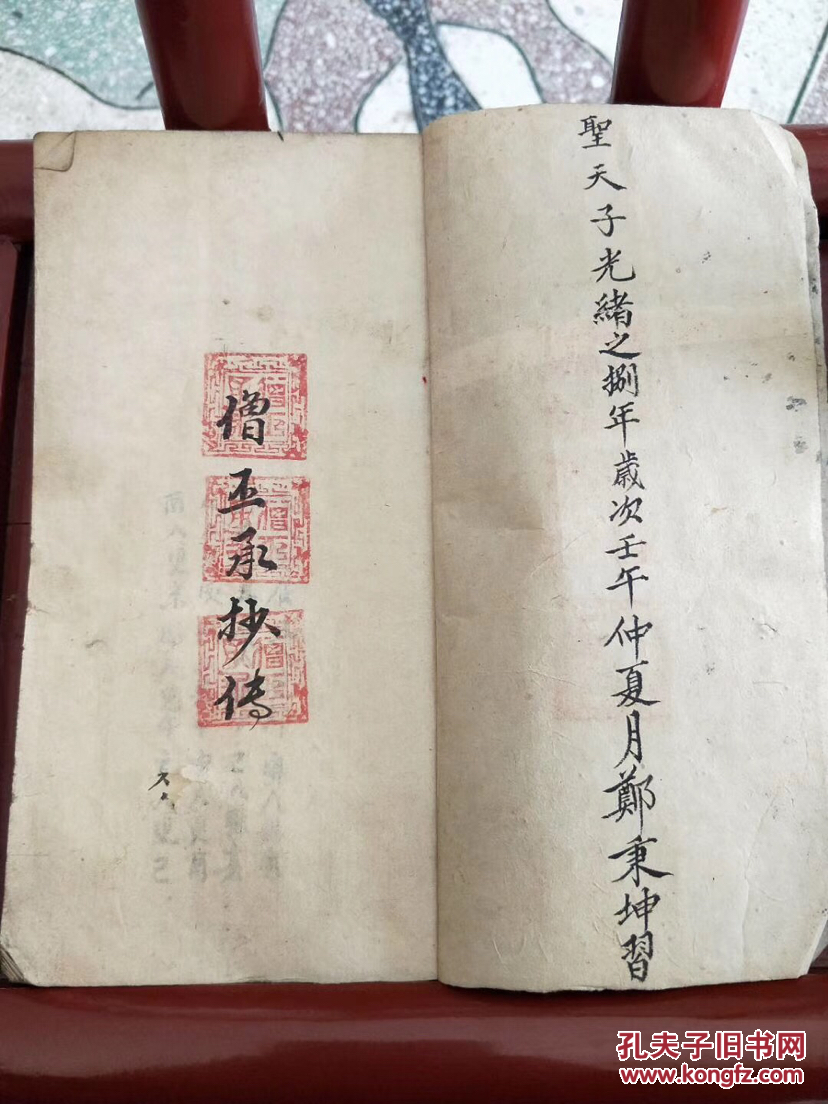 聖天子光緒之捌年歲次壬午仲夏月鄭秉坤習
僧丕承抄传
孔夫子旧书网
www.kongfz.com